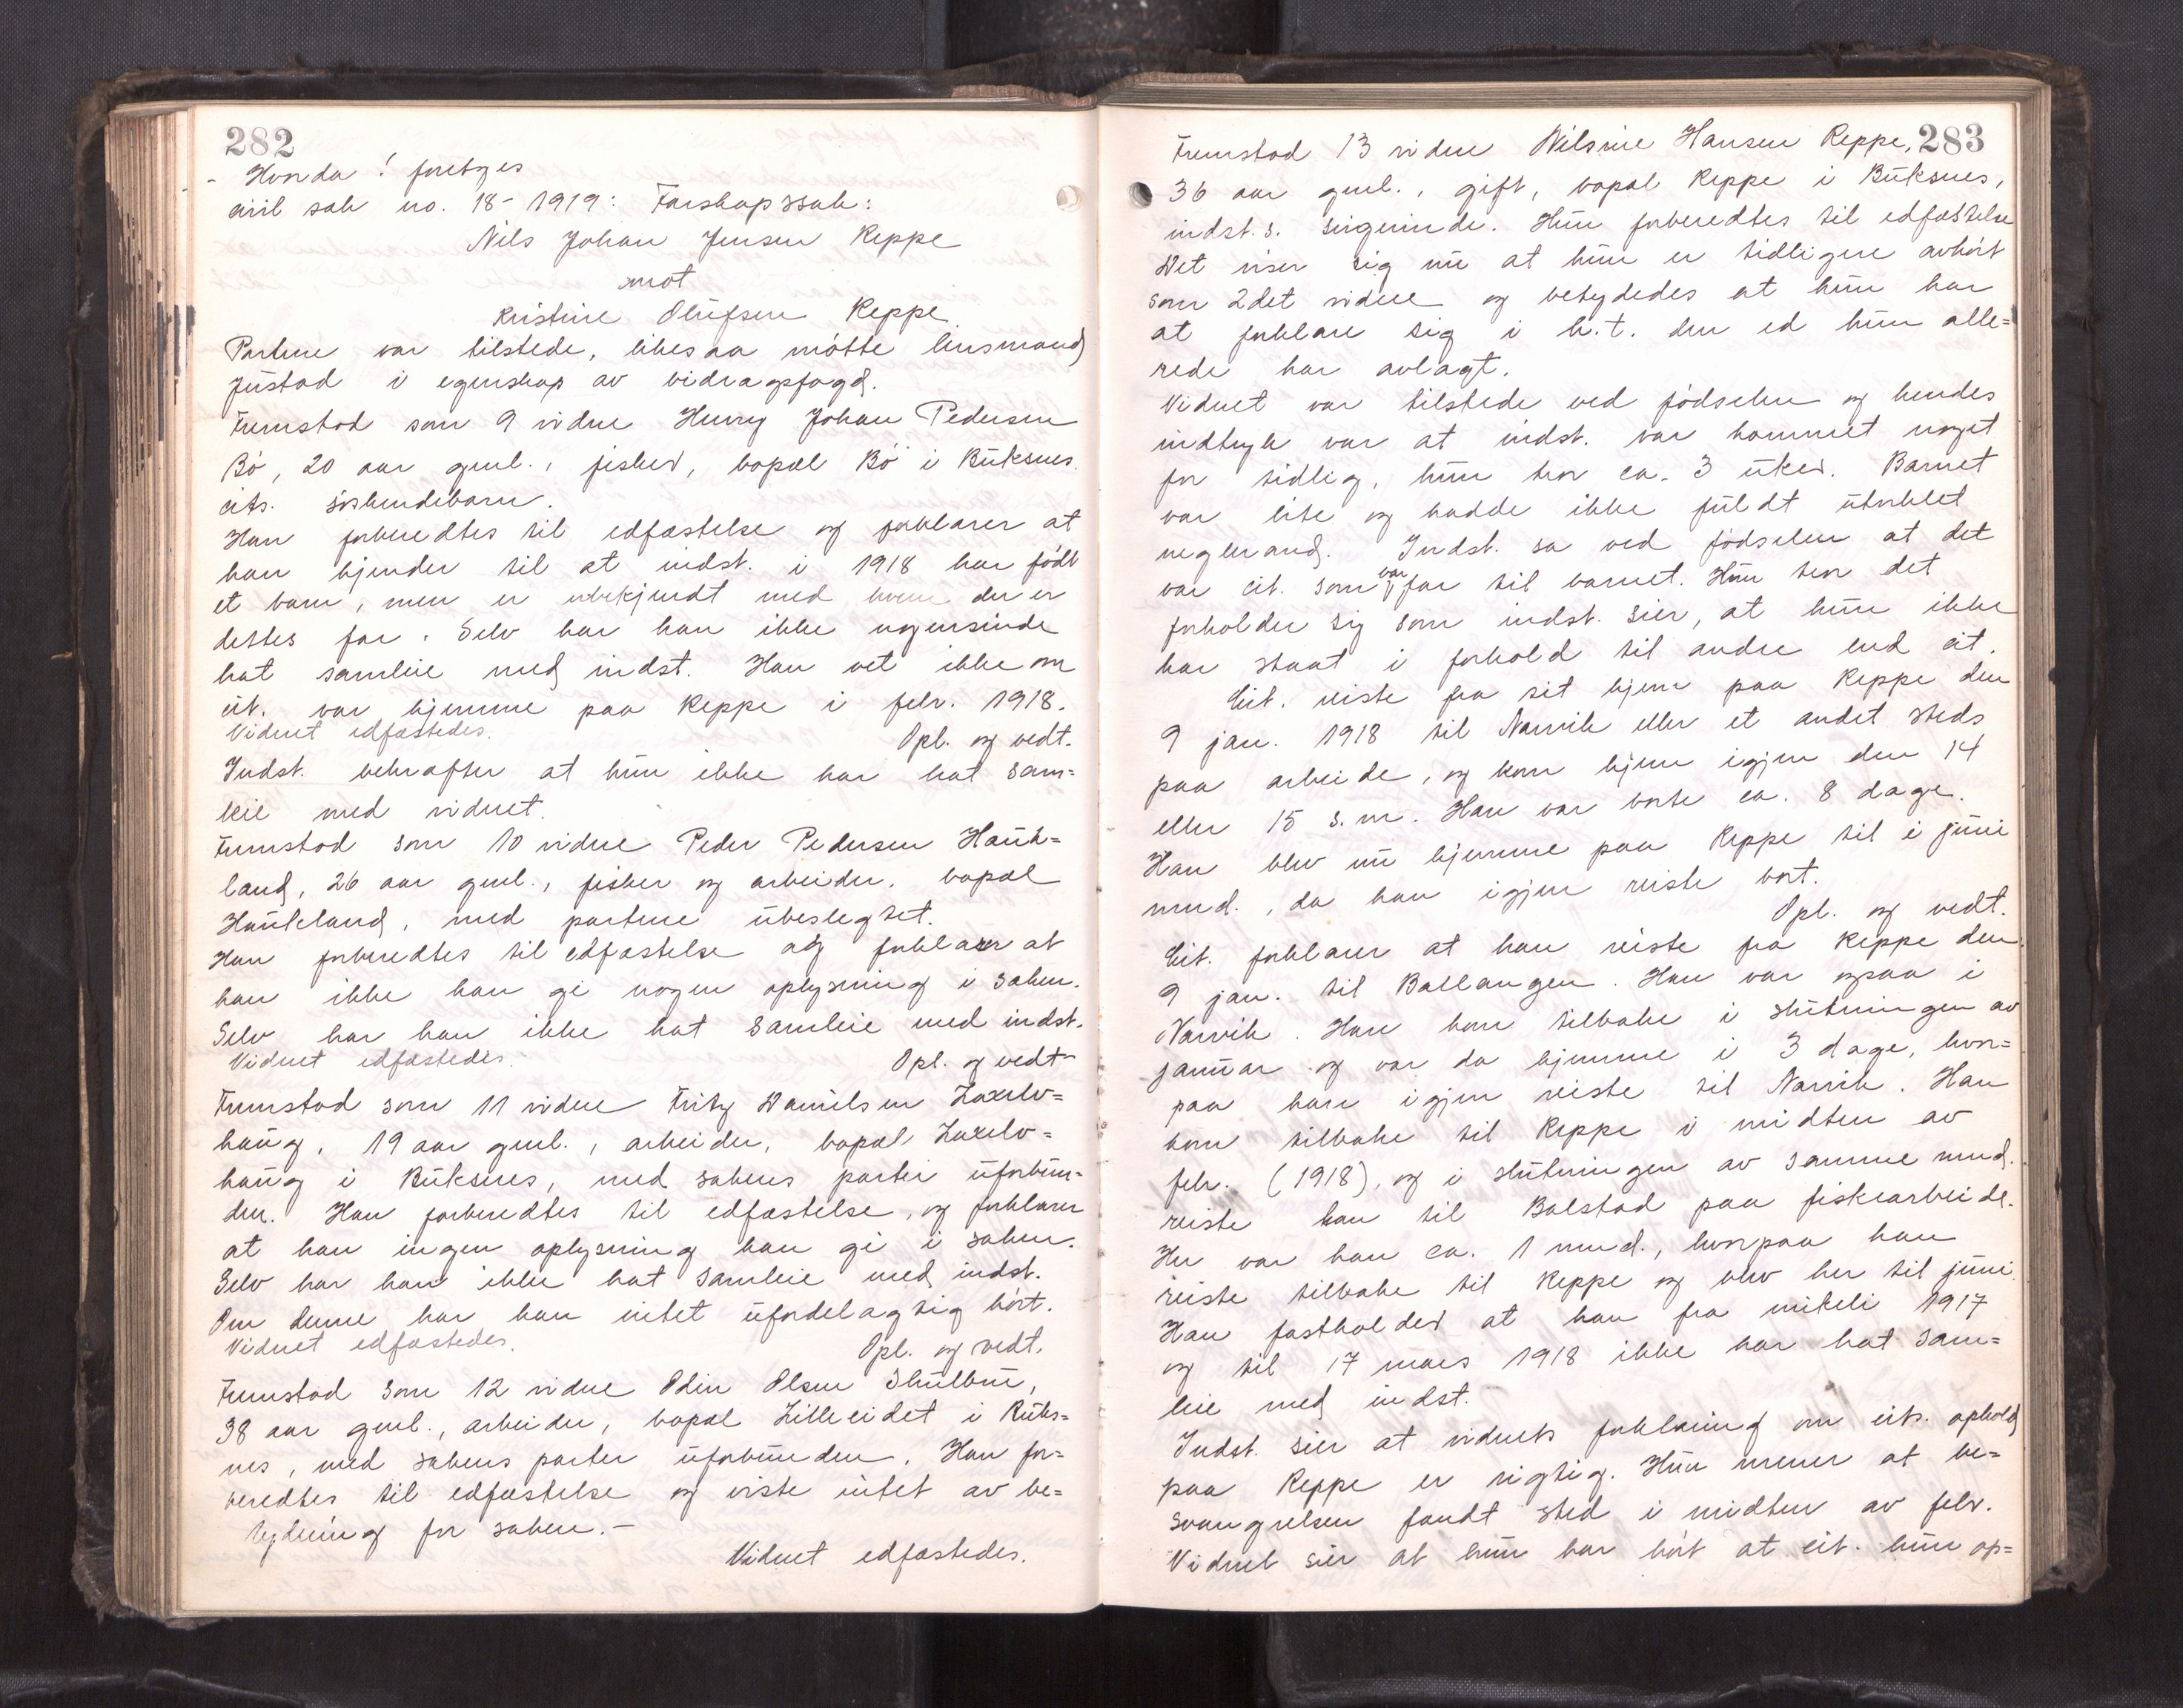 282
- Hvorda! foretoges
civil sak no. 18 - 1919: Farskapssak:
Nils Johan Jensen Reppe
mot
Kristine Olufsen Reppe.
Partene var tilstede, likesaa møtte lensmand
Justad i egenskap av bidragsfogd.
Fremstod som 9 vidne Henry Johan Pedersen
Bø, 20 aar gml., fisker, bopæl Bø i Buksnes.
cits. søskendebarn.
Han forberedtes til edfæstelse og forklarer at
han kjender til at indst. i 1918 har født
et barn, men er ubekjendt med hvem der er
dettes far. Selv har han ikke nogensinde
hat samleie med indst. Han vet ikke om
cit. var hjemme paa Reppe i febr. 1918.
Vidnet edfæstedes. Opl. og vedt.
Indst. bekræfter at hun ikke har hat sam=
leie med vidnet.
Fremstod som 10 vidne Peder Pedersen Hauk=
land, 26 aar gml., fisker og arbeider, bopæl
Haukeland, med partene ubeslegtet.
Han forberedtes til edfæstelse og forklarer at
han ikke kan gi nogen oplysning i saken.
Selv har han ikke hat samleie med indst.
Vidnet edfæstedes. Opl. og vedt
Fremstod som 11 vidne Fritz Danielsen Laxelv=
haug, 19 aar gml., arbeider, bopæl Laxelv=
haug i Buksnes, med sakens parter uforbun=
den. Han forberedtes til edfæstelse, og forklarer
at han ingen oplysning kan gi i saken.
Selv har han ikke hat samleie med indst.
Om denne har han intet ufordelagtig hørt.
Vidnet edfæstedes. Opl. og vedt.
Fremstod som 12 vidne Odin Olsen Skulbru,
38 aar gml., arbeider, bopæl Lilleeidet i Buks=
nes, med sakens parter uforbunden. Han for=
beredtes til edfæstelse og viste intet av be=
tydning for saken. -
Vidnet edfæstedes.
283
Fremstod 13 vidne Nilsine Hansen Reppe,
36 aar gml., gift, bopæl Reppe i Buksnes,
indst.s. svigerinde. Hun forberedtes til edfæstelse
Det viser sig nu at hun er tidligere avhørt
som 2det vidne og betydedes at hun har
at forklare sig i h.t. den ed hun alle=
rede har avlagt.
Vidnet var tilstede ved fødselen og hendes
indtryk var at indst. var kommet noget
for tidlig, hun tror ca. 3 uker. Barnet
var lite og hadde ikke fuldt utviklet
neglerand. Indst. sa ved fødselen at det
var cit. som var far til barnet. Hun tror det
forholder sig som indst. sier, at hun ikke
har staat i forhold til andre end cit.
Cit. reiste fra sit hjem paa Reppe den
9 jan. 1918 til Narvik eller et andet steds
paa arbeide, og kom hjem igjen den 14
eller 15 s.m. Han var borte ca. 8 dage.
Han blev nu hjemme paa Reppe til i juni
mnd., da han igjen reiste bort.
Opl. og vedt.
Cit. forklarer at han reiste fra Reppe den
9 jan. til Ballangen. Han var ogsaa i
Narvik. Han kom tilbake i slutningen av
januar og var da hjemme i 3 dage, hvor=
paa han igjen reiste til Narvik. Han
kom tilbake til Reppe i midten av
febr. (1918), og i slutningen av samme mnd.
reiste han til Balstad paa fiskearbeide.
Her var han ca. 1 mnd., hvorpaa han
reiste tilbake til Reppe og blev her til juni.
Han fastholder at han fra mikeli 1917
og til 17 mars 1918 ikke har hat sam=
leie med indst.
Indst. sier at vidnets forklaring om cits. ophold
paa Reppe er rigtig. Hun mener at be=
svangrelsen fandt sted i midten av febr.
Vidnet sier at hun har hørt at cit. hun op=